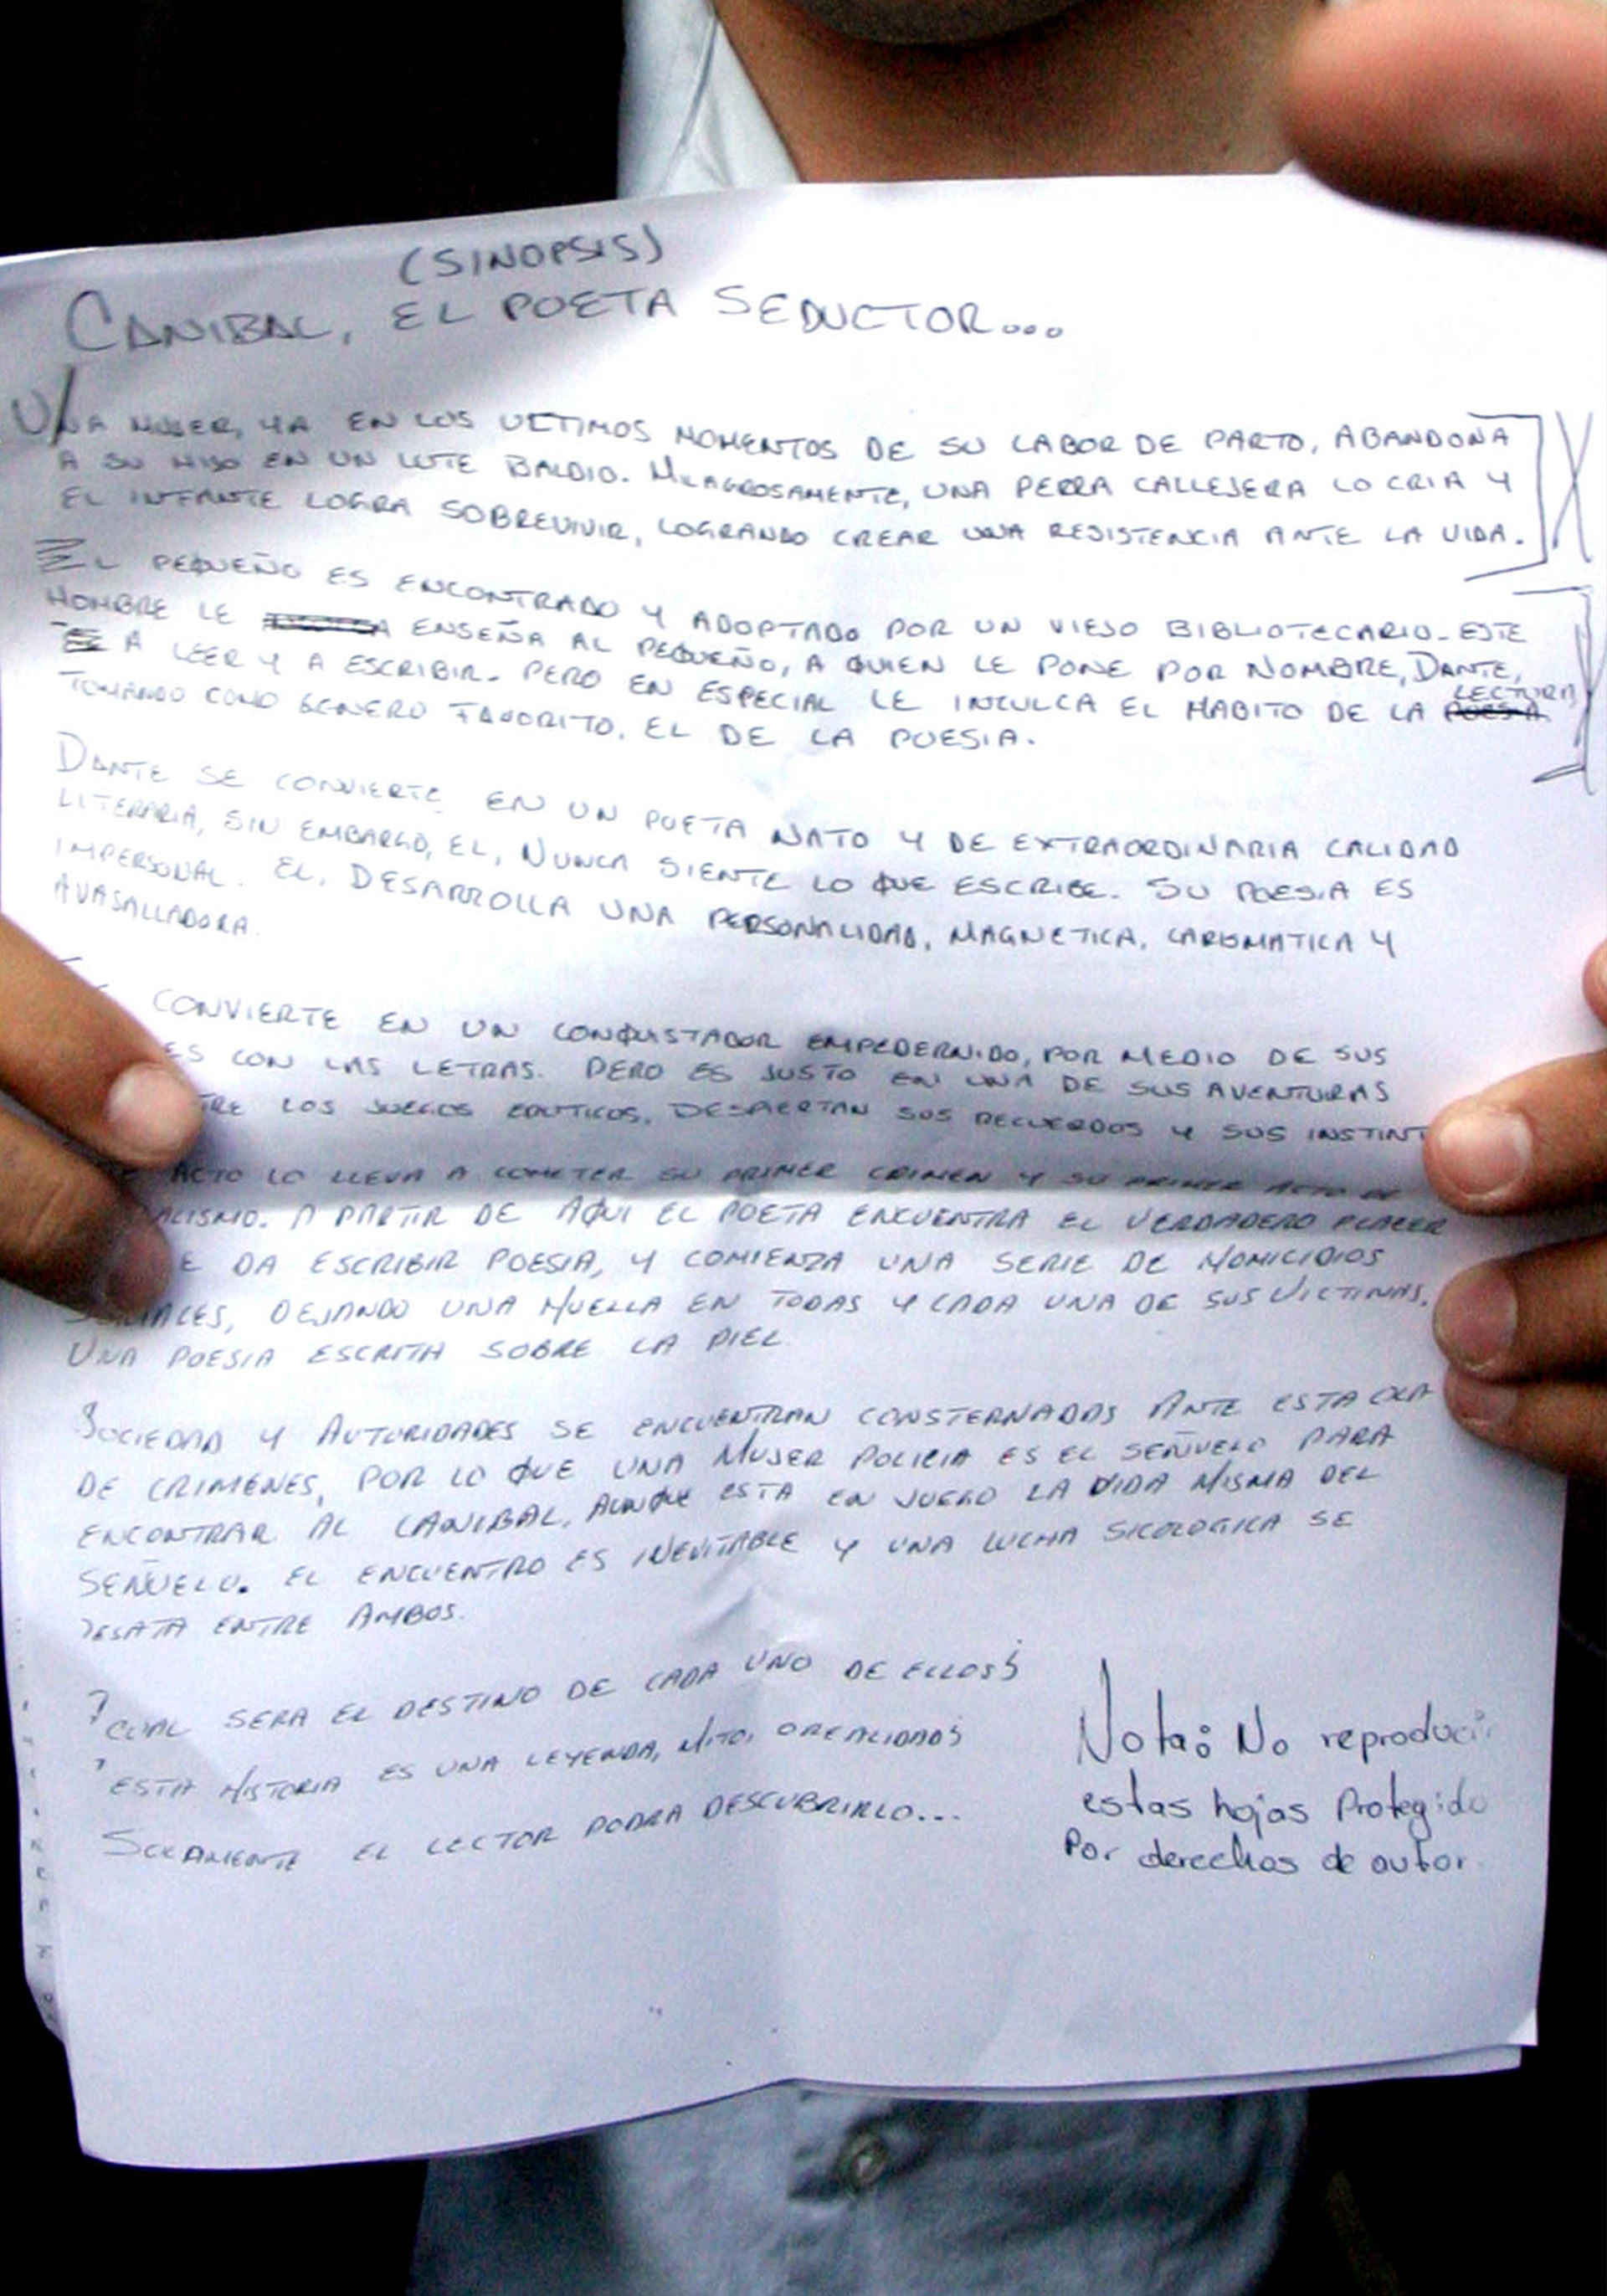 (SINOPSIS)
CANIBAL, EL POETA SEDUCTOR...
UNA MUJER, YA EN LOS ULTIMOS MOMENTOS DE SU LABOR DE PARTO, ABANDONA
A SU HIJO EN UN LOTE BALDIO. MILAGROSAMENTE, UNA PERRA CALLEJERA LO CRIA Y
EL INFANTE LOGRA SOBREVIVIR, LOGRANDO CREAR UNA RESISTENCIA ANTE LA VIDA.
EL PEQUEÑO ES ENCONTRADO Y ADOPTADO POR UN VIEJO BIBLIOTECARIO. ESTE
HOMBRE LE ENSEÑA AL PEQUEÑO, A QUIEN LE PONE POR NOMBRE, DANTE,
A LEER Y A ESCRIBIR. PERO EN ESPECIAL LE INCULCA EL HABITO DE LA LECTURA
TOMANDO COMO GENERO FAVORITO, EL DE LA POESIA.
DANTE SE CONVIERTE EN UN POETA NATO Y DE EXTRAORDINARIA CALIDAD
LITERARIA, SIN EMBARGO, EL, NUNCA SIENTE LO QUE ESCRIBE. SU POESIA ES
IMPERSONAL. EL, DESARROLLA UNA PERSONALIDAD, MAGNETICA, CARISMATICA Y
AVASALLADORA.
CONVIERTE EN UN CONQUISTADOR EMPEDERNIDO, POR MEDIO DE SUS
ES CON LAS LETRAS. PERO ES JUSTO EN UNA DE SUS AVENTURAS
TRE LOS JUEGOS EROTICOS, DESPIERTAN SUS RECUERDOS Y SUS INSTINT
ACTO LO LLEVA A COMETER SU PRIMER CRIMEN Y SU PRIMER ACTO DE
ALISMO. A PARTIR DE AQUI EL POETA ENCUENTRA EL VERDADERO PLACER
E DA ESCRIBIR POESIA, Y COMIENZA UNA SERIE DE HOMICIDIOS
IALES, DEJANDO UNA HUELLA EN TODAS Y CADA UNA DE SUS VICTIMAS,
UNA POESIA ESCRITA SOBRE LA PIEL.
SOCIEDAD Y AUTORIDADES SE ENCUENTRAN CONSTERNADAS ANTE ESTA OLA
DE CRIMENES, POR LO QUE UNA MUJER POLICIA ES EL SEÑUELO PARA
ENCONTRAR AL CANIBAL, AUNQUE ESTA EN JUEGO LA VIDA MISMA DEL
SEÑUELO. EL ENCUENTRO ES INEVITABLE Y UNA LUCHA SICOLOGICA SE
DESATA ENTRE AMBOS.
?CUAL SERA EL DESTINO DE CADA UNO DE ELLOS?
?ESTA HISTORIA ES UNA LEYENDA, MITO, O REALIDAD?
SOLAMENTE EL LECTOR PODRA DESCUBRIRLO...
Nota: No reproducir
estas hojas Protegido
Por derechos de autor.